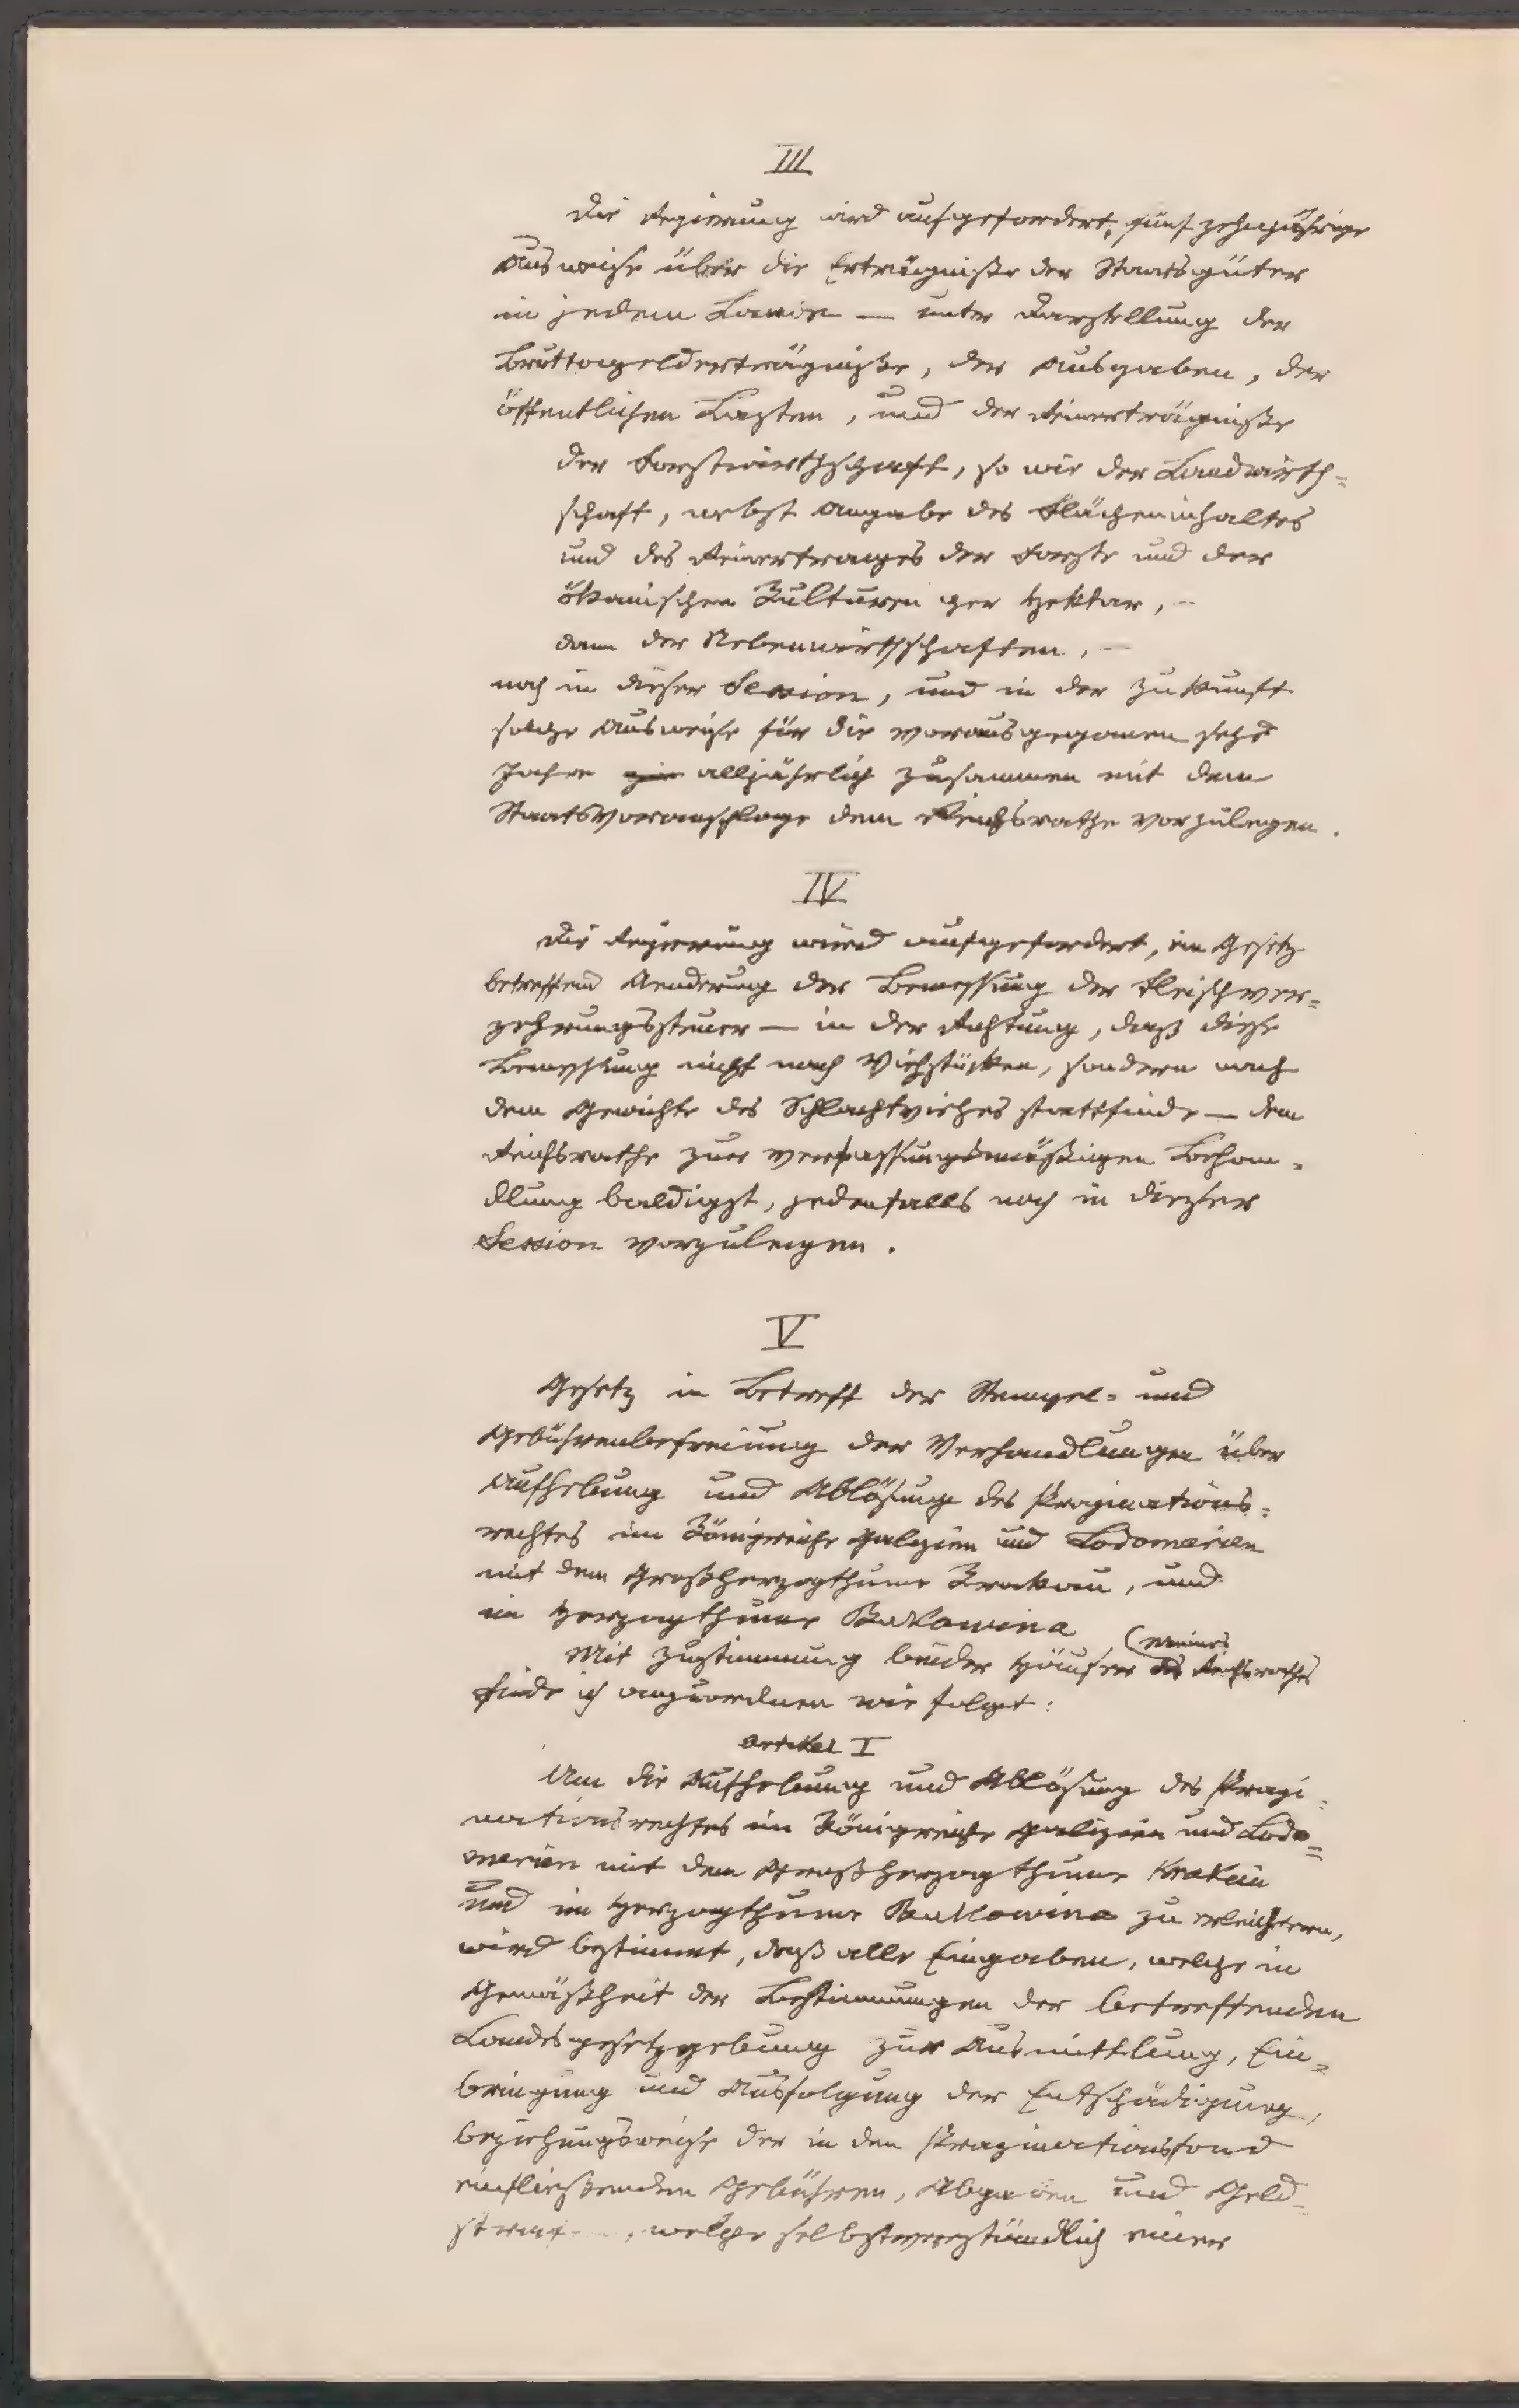 III
Die Regierung wird aufgefordert, fünfzehnjährige
Ausweise über die Erträgniße der Staatsgüter
in jedem Lande — unter Darstellung der
Bruttogelderträgniße, der Ausgaben, der
öffentlichen Lasten, und der Reinerträgniße
der Forstwirthschaft, so wie der Landwirth=
schaft, nebst Angabe des Flächeninhaltes
und des Reinertrages der Forste und der
ökonischen Kulturen per Hektar, —
dann der Nebenwirthschaften, —
noch in dieser Session, und in der Zukunft
solche Ausweise für die vorausgegangenen sechs
Jahre alljährlich zusammen mit dem
Staatsvoranschlage dem Reichsrathe vorzulegen.
IV
Die Regierung wird aufgefordert, ein Gesetz
betreffend Aenderung der Bemessung der Fleischver=
zehrungssteuer — in der Richtung, daß diese
Bemessung nicht nach Viehstücken, sondern nach
dem Gewichte des Schlachtviehes stattfinde — dem
Reichsrathe zur verfassungsmäßigen Behan=
dlung baldigst, jedenfalls noch in dieser
Session vorzulegen.
V
Gesetz in Betreff der Stempel= und
Gebührenbefreiung der Verhandlungen über
Aufhebung und Ablösung des Propinations=
rechtes im Königreiche Galizien und Lodomerien
mit dem Großherzogthume Krakau, und
im Herzogthume Bukowina
Mit Zustimmung beider Häuser des (meines Reichsrathes
finde ich anzuordnen wie folgt:
Artikel I
Um die Aufhebung und Ablösung des Propi=
nationsrechtes im Königreiche Galizien und Lodo=
merien mit dem Großherzogthume Krakau
und im Herzogthume Bukowina zu erleichtern,
wird bestimmt, daß alle Eingaben, welche in
Gemäßheit der Bestimmungen der betreffenden
Landesgesetzgebung zur Ausmittlung, Ein=
bringung und Ausfolgung der Entschädigung,
beziehungsweise der in den Propinationsfond
einfließenden Gebühren, Abgaben und Geld=
, welche selbstverständlich einer